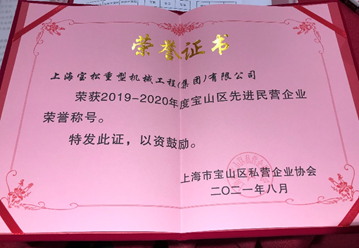 荣誉证书
上海宝松重型机械工程(集团)有限公司
荣获2019-2020年度宝山区先进民营企业
荣誉称号。
特发此证，以资鼓励。
上海市宝山区私营企业协会
二〇二一年八月